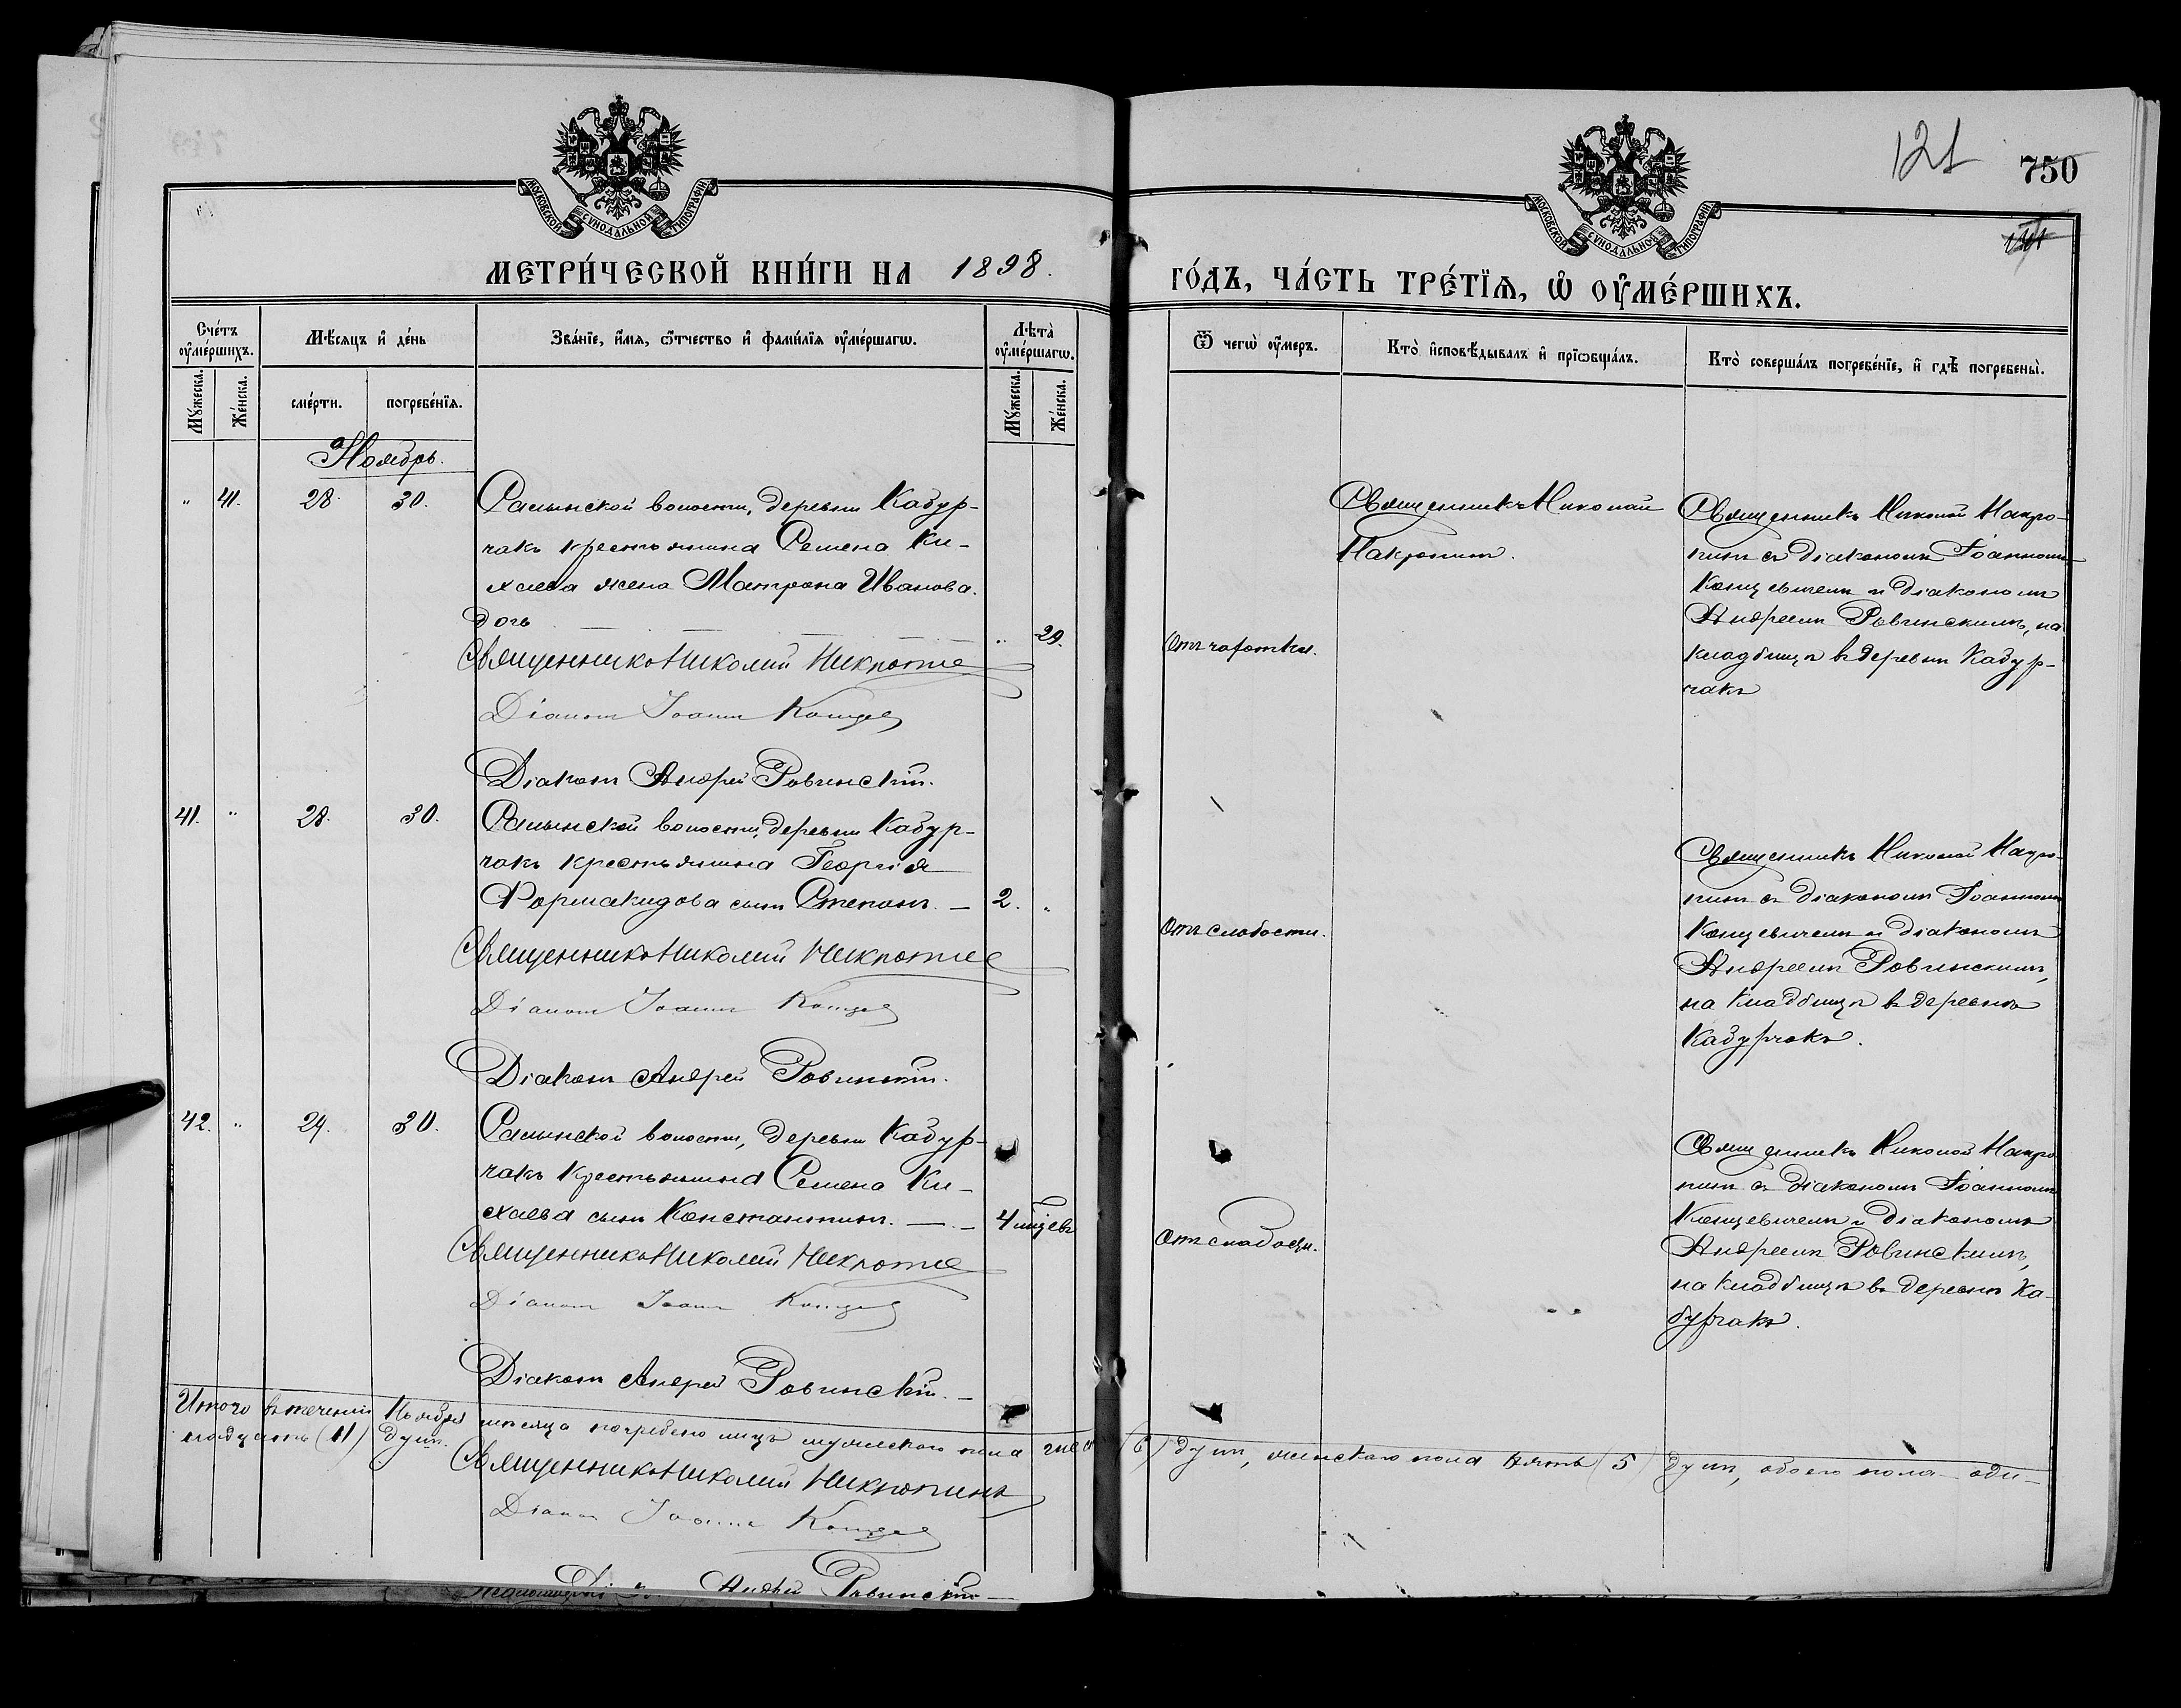 121
750
МОСКОВСКОЙ СѴНОДАЛЬНОЙ ТИПОГРАФІИ
МОСКОВСКОЙ СѴНОДАЛЬНОЙ ТИПОГРАФІИ
МЕТРИ́ЧЕСКОЙ КНИ́ГИ НА 1898.
ГО́ДЪ, ЧА́СТЬ ТРЕ́ТЇѦ, Ѡ҆ ОУ҆МЕ́РШИХЪ.
Сче́тъ оу҆ме́ршихъ.
Мꙋ́жеска.
Же́нска.
Мѣ́сѧцъ и҆ де́нь
сме́рти.
погребе́нїѧ.
Зва́нїе, и҆́мѧ, ѻ҆́тчество и҆ фами́лїѧ оу҆ме́ршагѡ.
Лѣта̀ оу҆ме́ршагѡ.
Мꙋ́жеска.
Же́нска.
Ѿ чегѡ̀ оу҆́меръ.
Кто̀ и҆сповѣ́дывалъ и҆ прїѡбща́лъ.
Кто̀ соверша́лъ погребе́нїе, и҆ гдѣ̀ погребены̀.
Ноябрь.
" 41. 28. 30.
Салынской волости, деревни Кабур-
чакъ крестьянина Семена Ки-
хаева жена Матрона Иванова.
дочь — — — — " 29.
Священникъ Николай
Діаконъ Іоаннъ
Діаконъ Андрей Ровинскій.
Отъ чахотки.
Священникъ Николай
Макропит
Священникъ Николай Макро-
пит съ діакономъ Іоанномъ
Концевичемъ и діакономъ
Андреемъ Ровинскимъ, на
кладбищѣ въ деревни Кабур-
чакъ
41. " 28. 30.
Салынской волости, деревни Кабур-
чакъ крестьянина Георгія
Формакидова сынъ Степанъ. — 2. "
Священникъ Николай
Діаконъ Іоаннъ
Діаконъ Андрей Ровинскій.
Отъ слабости.
Священникъ Николай Макро-
пит съ діакономъ Іоанномъ
Концевичемъ и діакономъ
Андреемъ Ровинскимъ,
на кладбищѣ въ деревнѣ
Кабурчакъ.
42. " 29. 30.
Салынской волости, деревни Кабур-
чакъ крестьянина Семена Ки-
хаева сынъ Константинъ. — — 4 мѣсцевъ
Священникъ Николай
Діаконъ Іоаннъ
Діаконъ Андрей Ровинскій. —
Отъ слабости.
Священникъ Николай Макро
пит съ діакономъ Іоанномъ
Концевичемъ и діакономъ
Андреемъ Ровинскимъ,
на кладбищѣ въ деревнѣ Ка-
бурчакъ.
Итого въ теченіи Ноября мѣсяца погребено лицъ мужескаго пола шесть (6) душъ, женскаго пола пять (5) душъ, обоего пола оди-
надцать (11) душъ.
Священникъ Николай
Діаконъ Іоаннъ
Андрей Ровинскій —